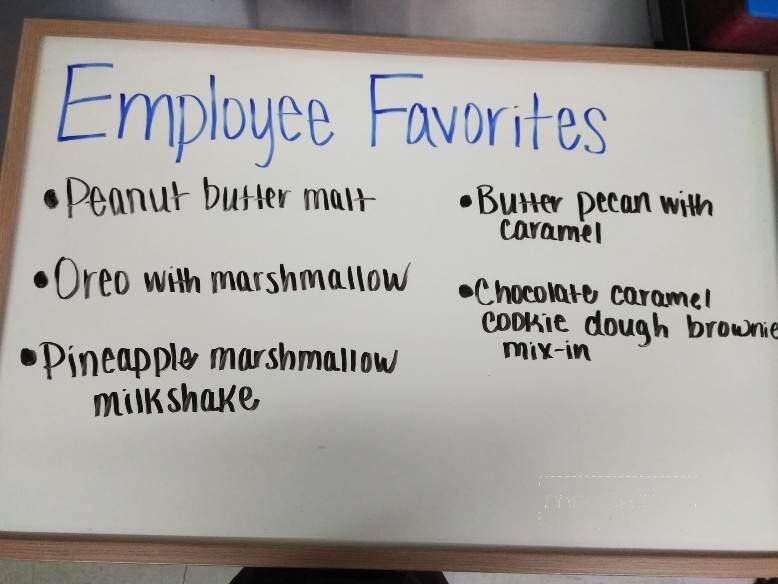 Employee Favorites
• Peanut butter malt
• Oreo with marshmallow
• Pineapple marshmallow
milkshake
• Butter pecan with
caramel
• Chocolate caramel
cookie dough brownie
mix-in